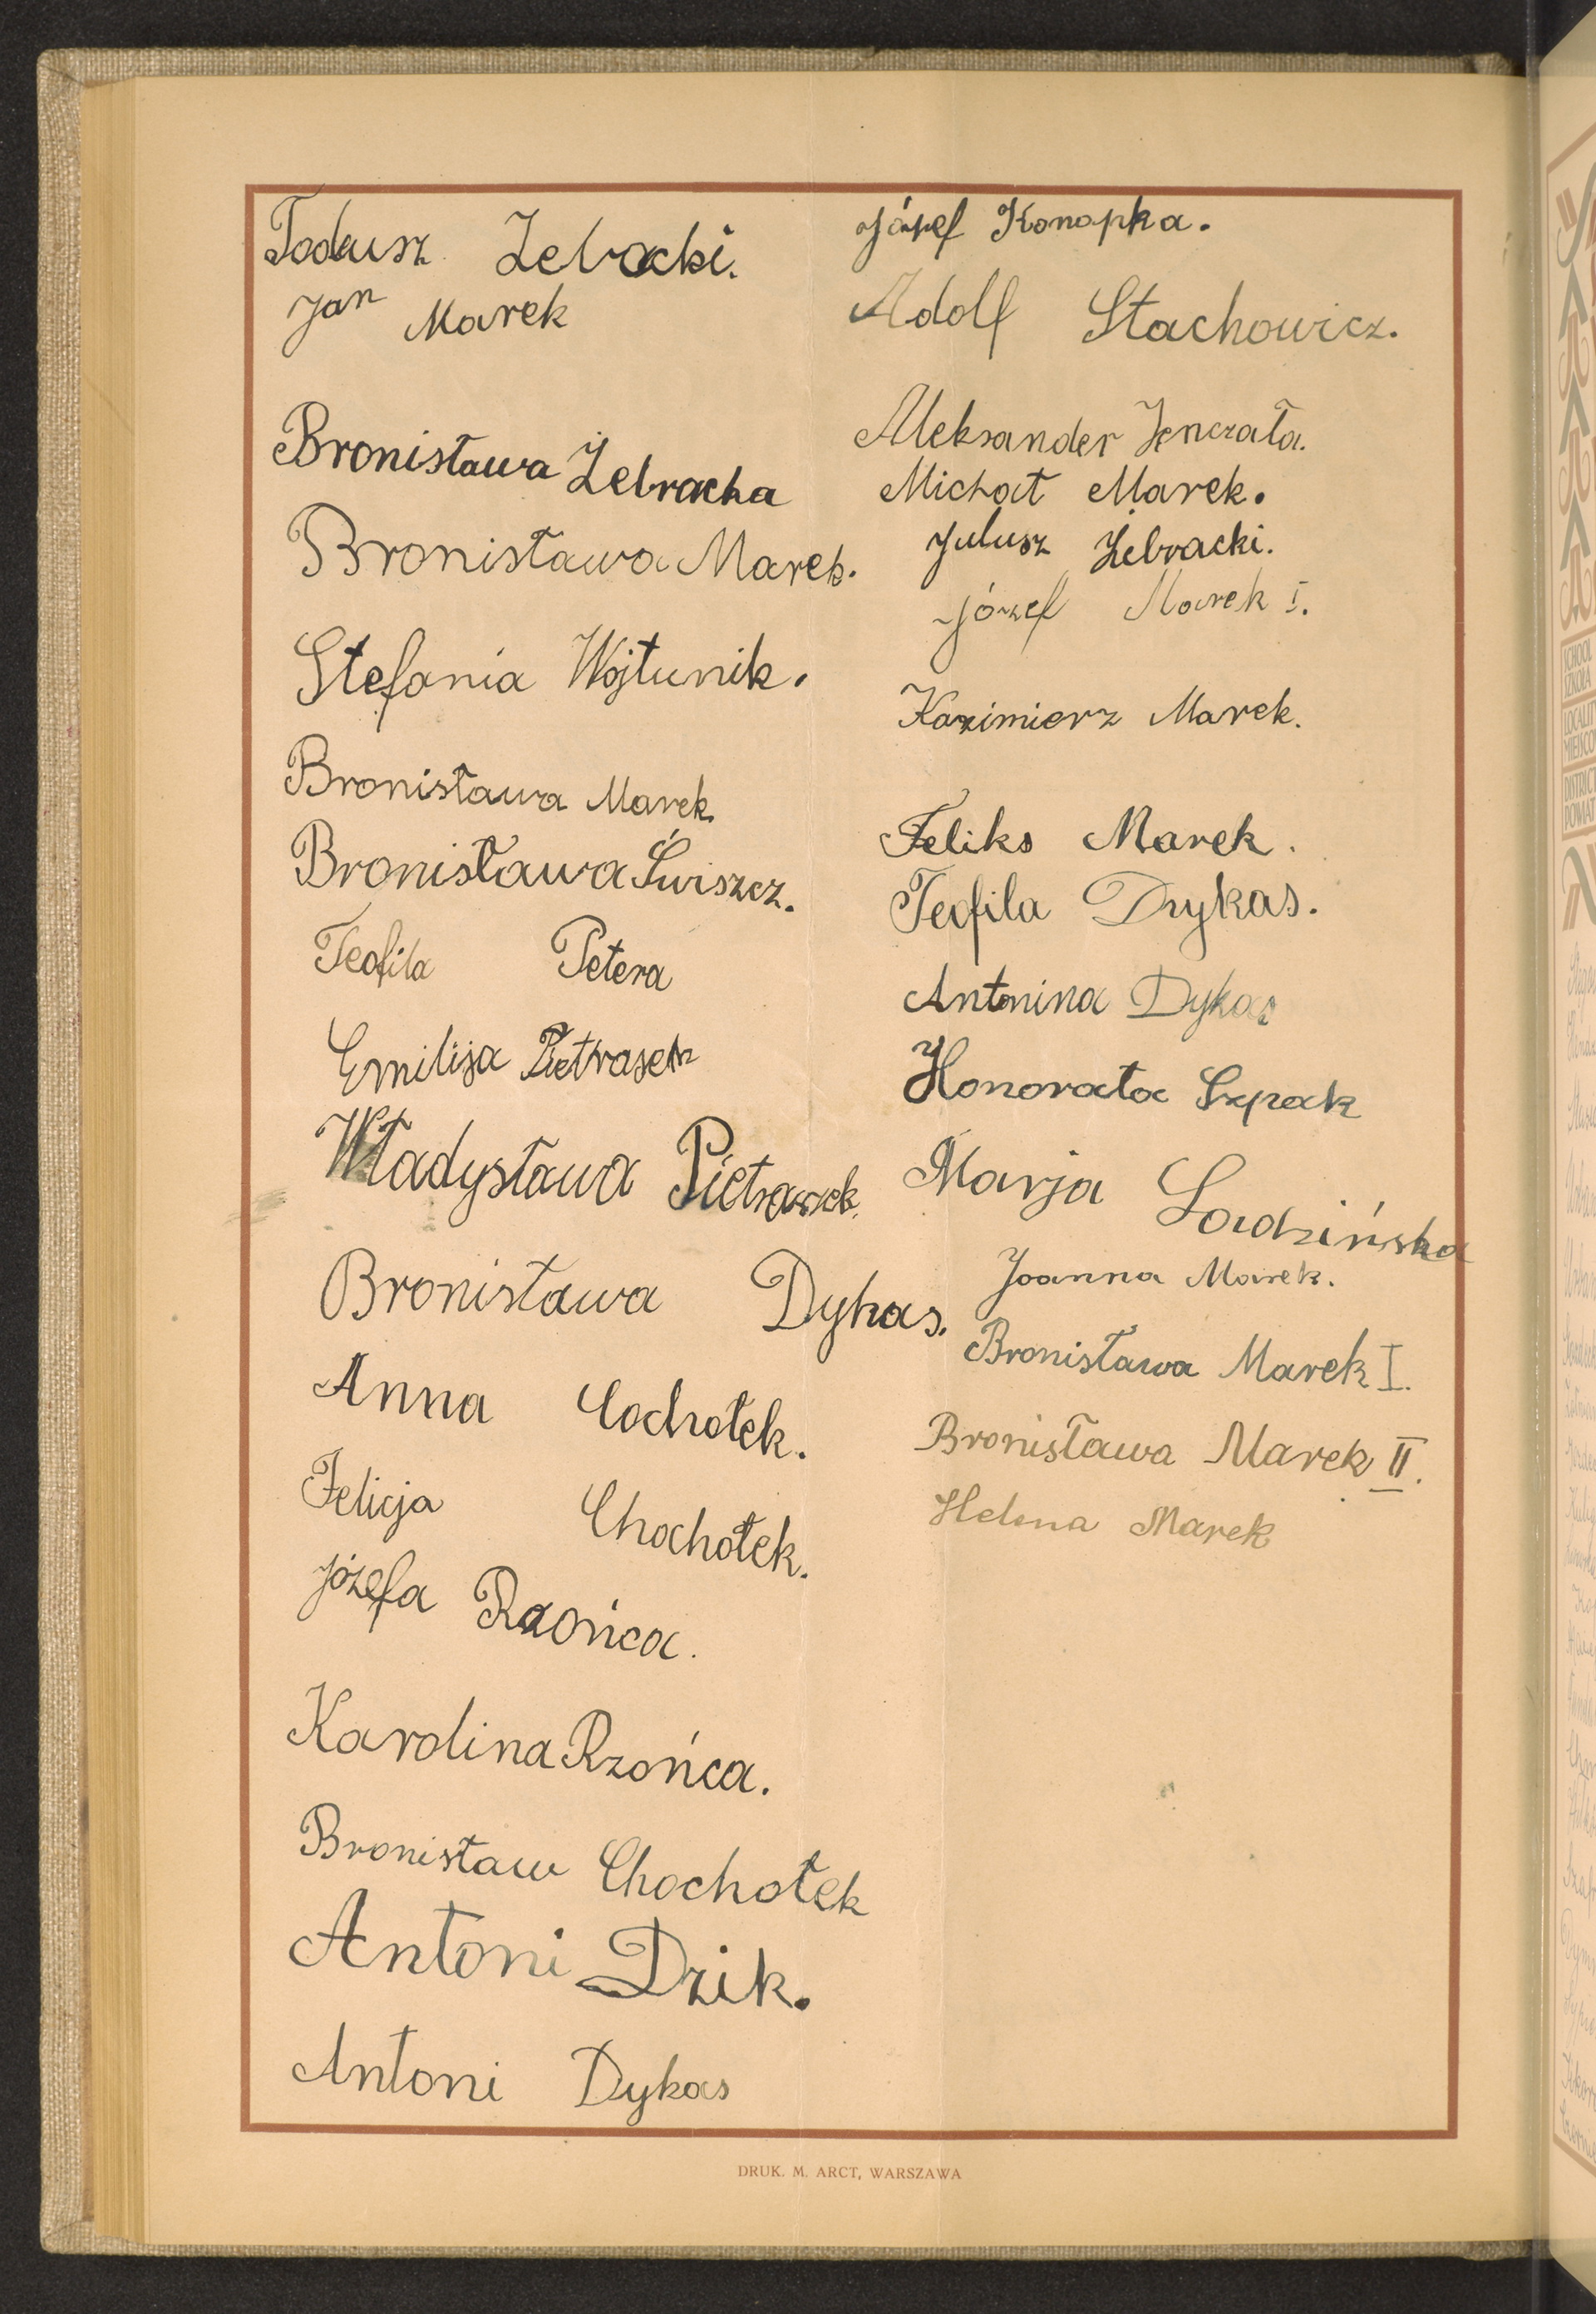 Tadeusz Zebracki.
Jan Marek
Bronisława Żebracka
Bronisława Marek.
Stefania Wójtunik.
Bronisława Marek.
Bronisława Świszcz.
Teofila Petera
Emilija Pietrasek
Władysława Pietraszek.
Bronisława Dykas.
Anna Cochołek.
Felicja Chochołek.
Józefa Rzońca.
Karolina Rzońca.
Bronisław Chochołek
Antoni Dzik.
Antoni Dykas
Józef Konopka.
Adolf Stachowicz.
Aleksander Jenczała.
Michał Marek.
Juljusz Żebracki.
Józef Marek I.
Kazimierz Marek.
Feliks Marek.
Teofila Drykas.
Antonina Dykas
Honorata Szpak
Marja
Joanna Marek.
Bronisława Marek I.
Bronisława Marek II.
Helena Marek
DRUK. M. ARCT, WARSZAWA
SCHOOL
SZKOŁA